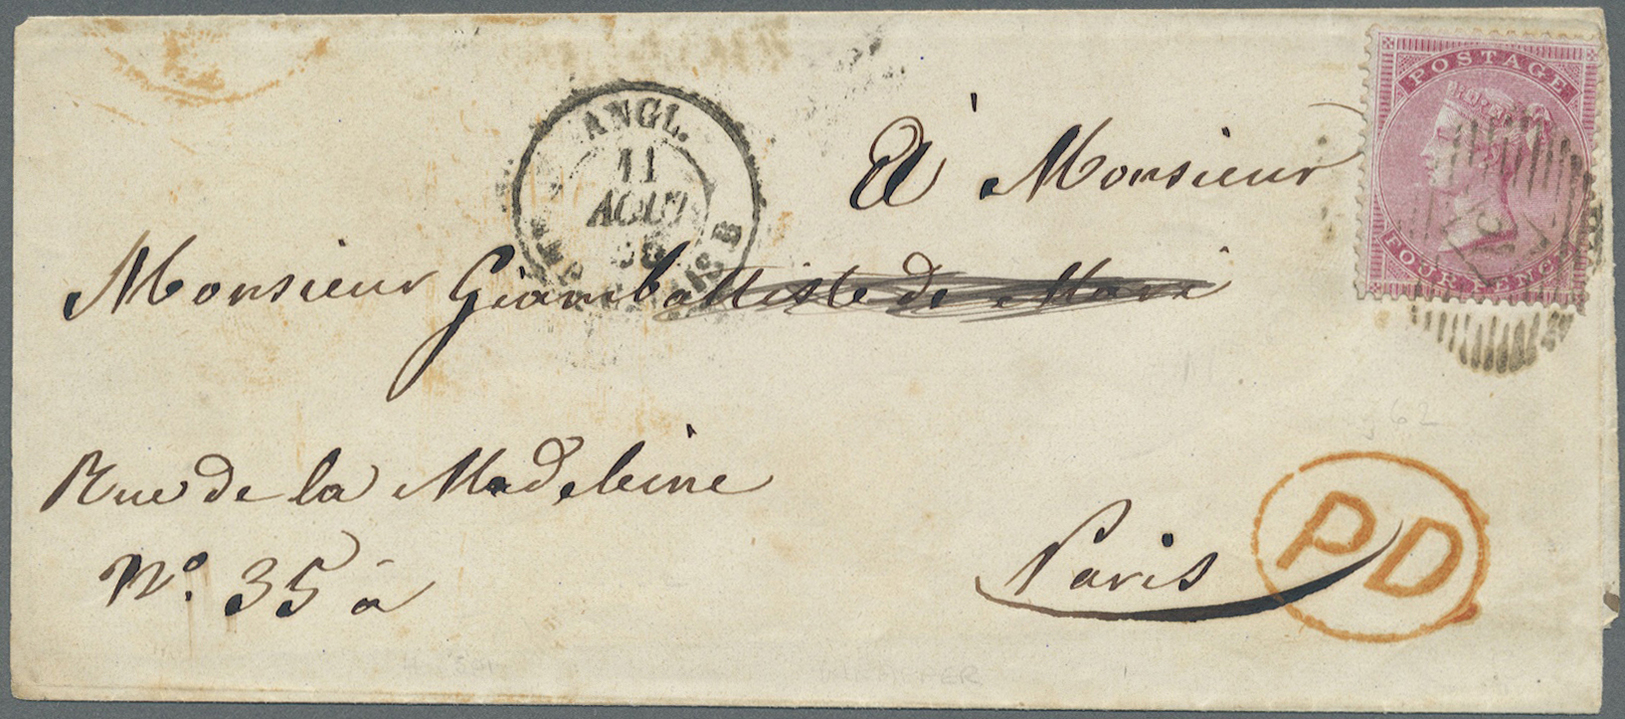 POSTAGE
FOUR PENCE
ANGL.
11
AOUT
À Monsieur
Monsieur Giambattiste de Mari
Rue de la Madeleine
Nº. 35 à
Paris
PD
62